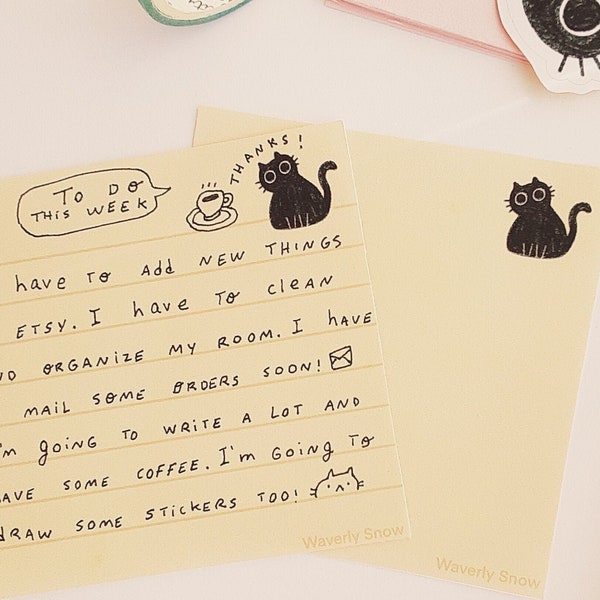 TO DO
THIS WEEK
THANKS!
have TO Add NEW THINGS
ETSY. I have TO cleAN
ORGANIZE MY ROOM. I hAVE
MAIL SOME ORDERS SOON!
I'm going TO WRITE A LOT AND
HAVE SOME COFFEE. I'm GOING TO
dRAW SOME STickERS TOO!
Waverly Snow
Waverly Snow